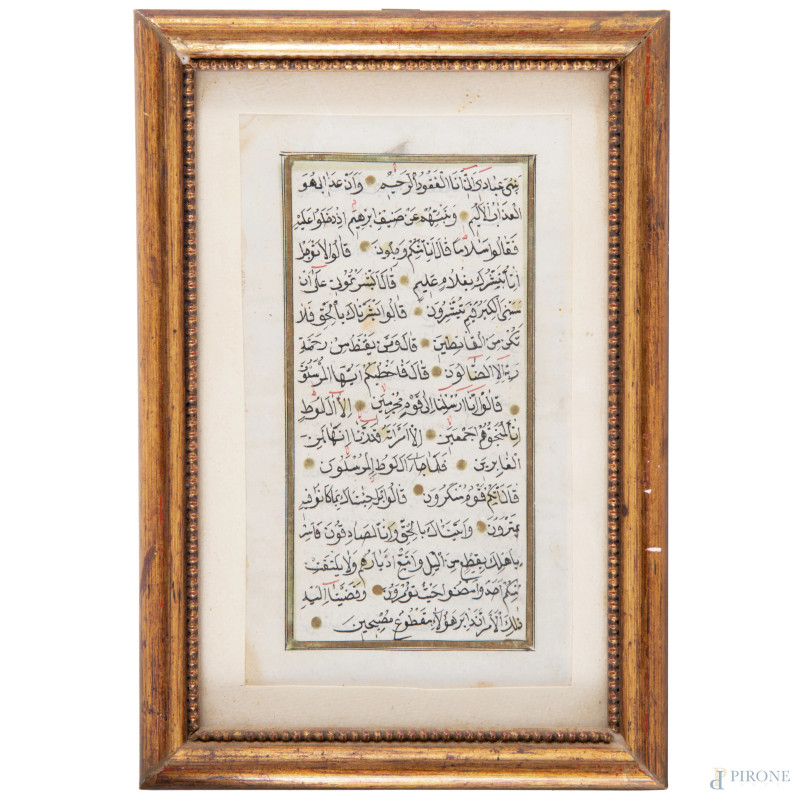 نبئ عبادي اني انا الغفور الرحيم وان عذابي هو
العذاب الاليم ونبئهم عن ضيف ابرهيم اذ دخلوا عليه
فقالوا سلاما قال انا منكم وجلون قالوا لا توجل
انا نبشرك بغلام عليم قال ابشرتموني على ان
مسني الكبر فبم تبشرون قالوا بشرناك بالحق فلا
تكن من القانطين قال ومن يقنط من رحمة
ربه الا الضالون قال فما خطبكم ايها المرسلون
قالوا انا ارسلنا الى قوم مجرمين الا ال لوط
انا لمنجوهم اجمعين الا امراته قدرنا انها لمن
الغابرين فلما جاء ال لوط المرسلون
قال انكم قوم منكرون قالوا بل جئناك بما كانوا فيه
يمترون واتيناك بالحق وانا لصادقون فاسر
باهلك بقطع من اليل واتبع ادبارهم ولا يلتفت
منكم احد وامضوا حيث تؤمرون وقضينا اليه
ذلك الامر ان دابر هؤلاء مقطوع مصبحين
PIRONE